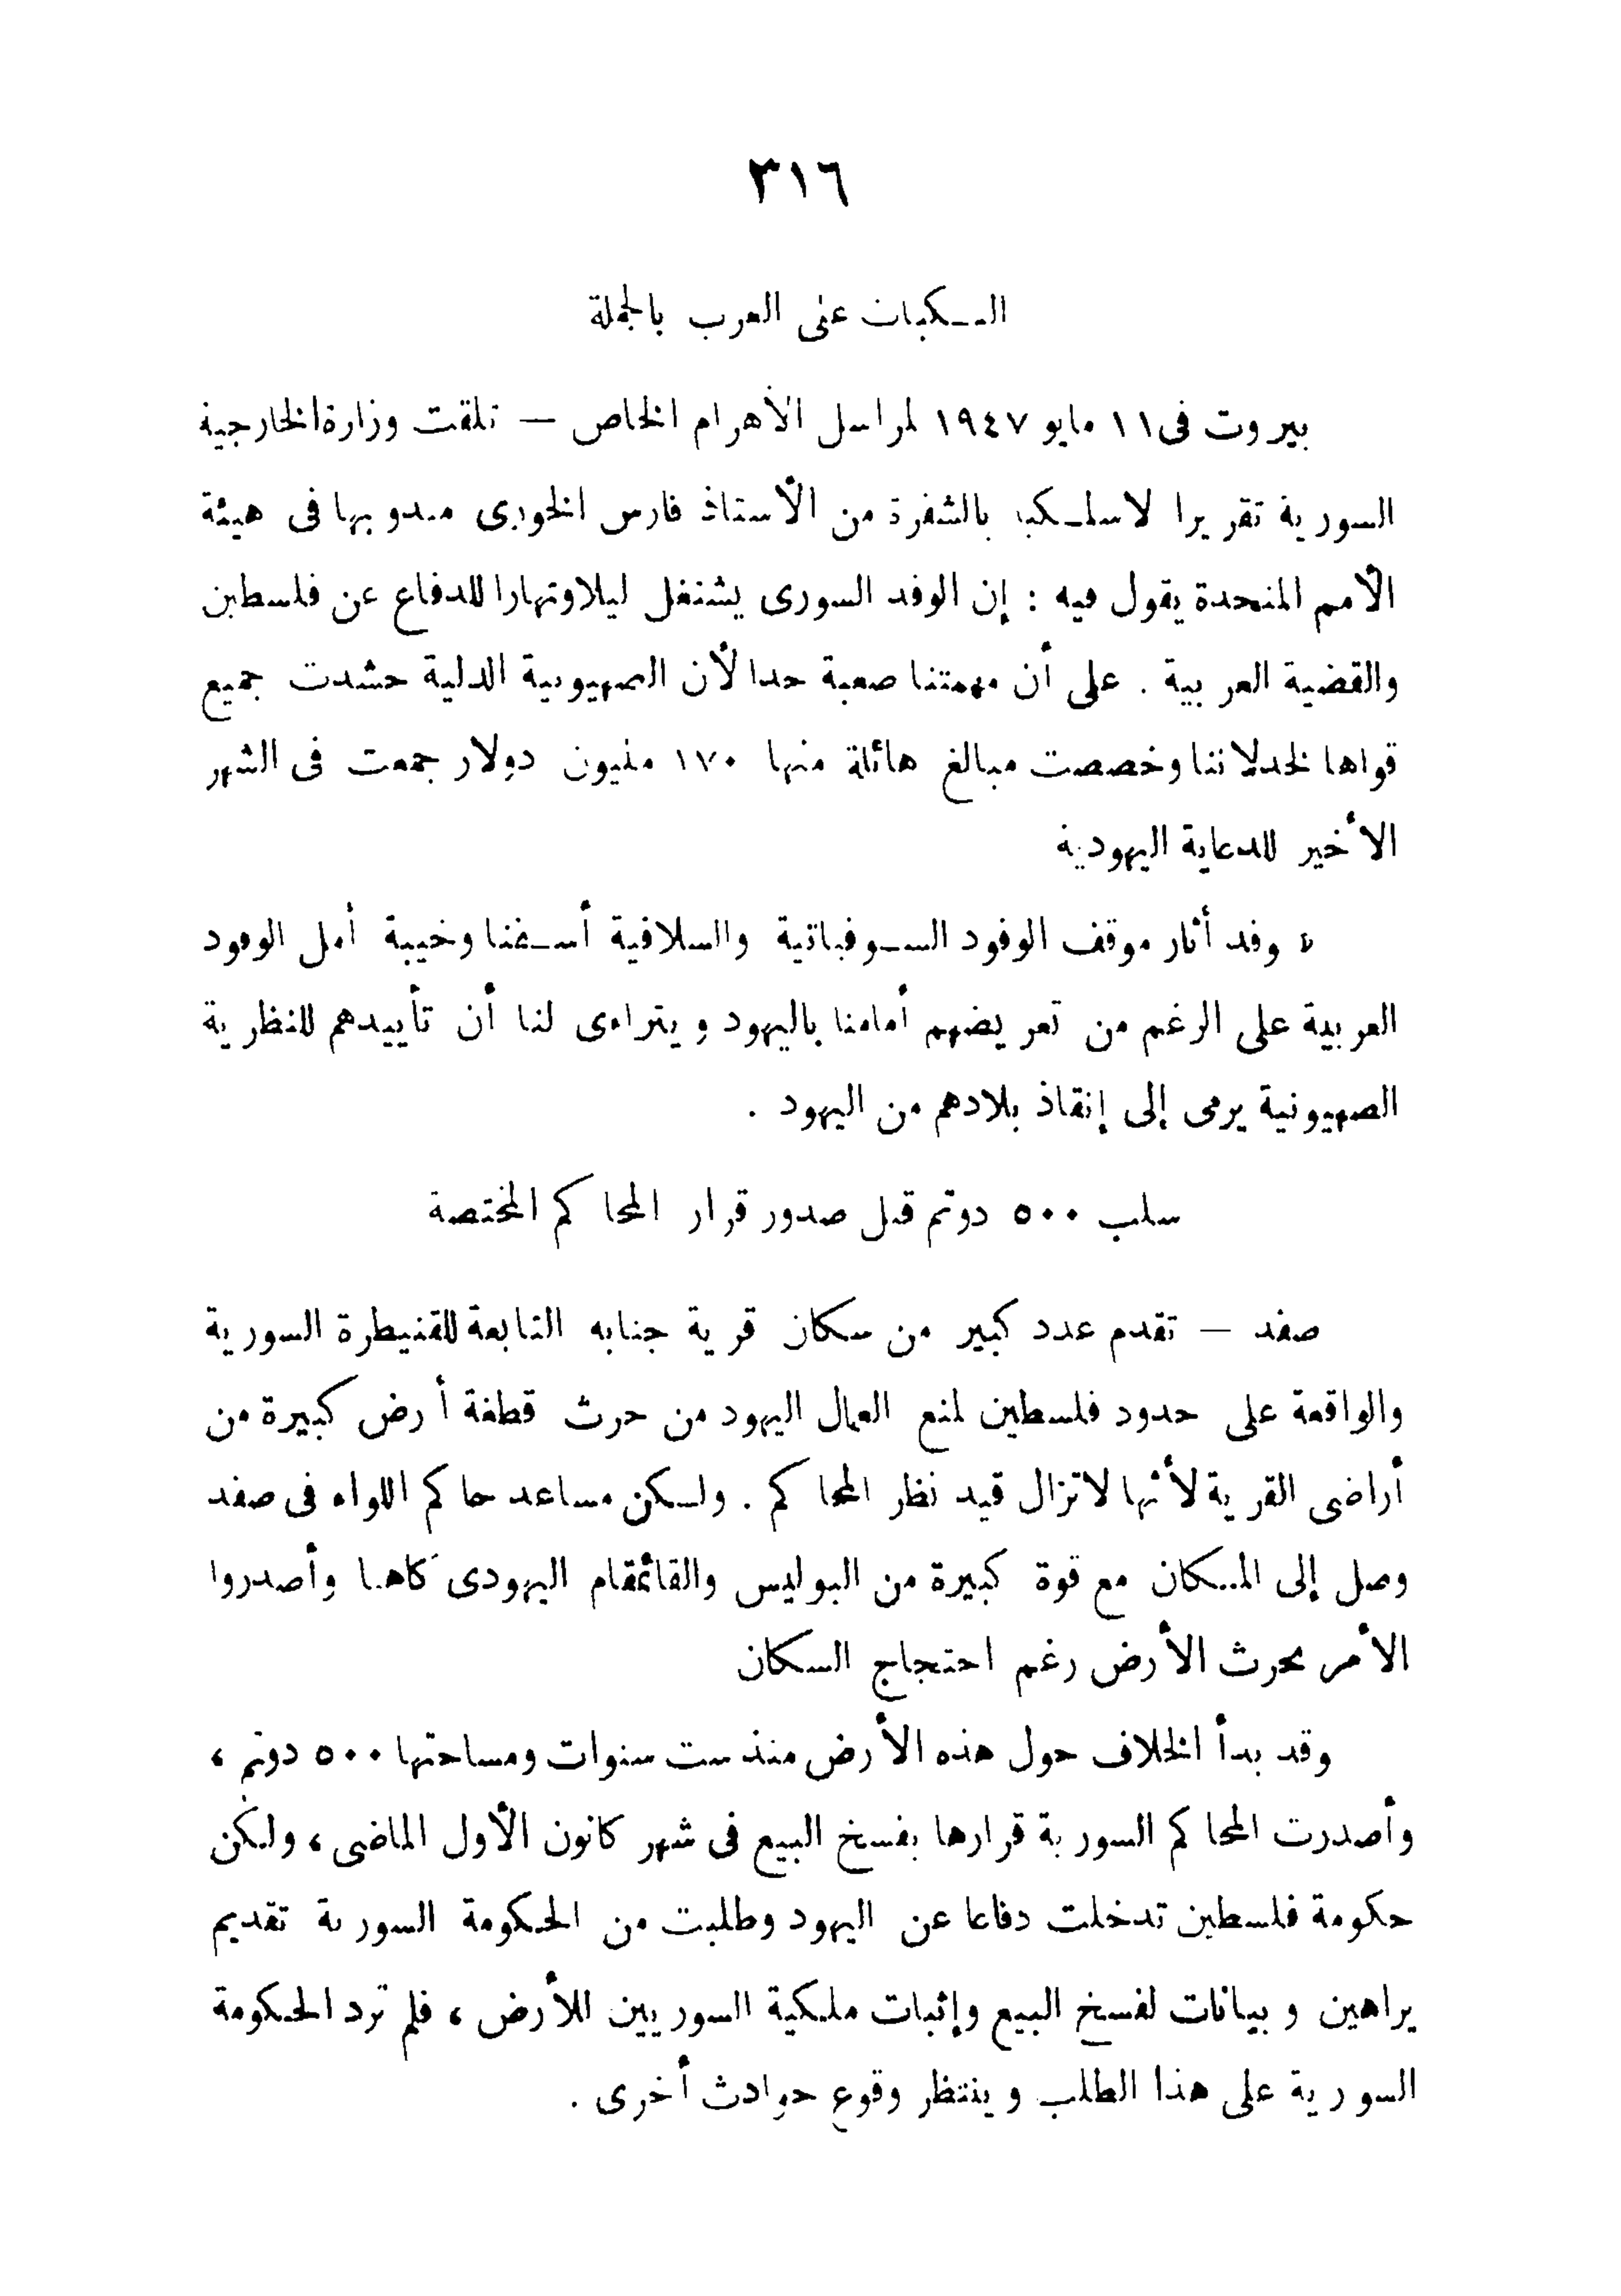 ٣١٦
النكبات على العرب بالجملة
بيروت فى ١١ مايو ١٩٤٧ لمراسل الأهرام الخاص — تلقت وزارة الخارجية
السورية تقريرا لاسلكيا بالشفرة من الأستاذ فارس الخورى مندوبها فى هيئة
الأمم المتحدة يقول فيه : إن الوفد السورى يشتغل ليلا ونهارا للدفاع عن فلسطين
والقضية العربية . على أن مهمتنا صعبة جدا لأن الصهيونية الدلية حشدت جميع
قواها لخذلاننا وخصصت مبالغ هائلة منها ١٧٠ مليون دولار جمعت فى الشهر
الأخير للدعاية اليهودية
« وقد أثار موقف الوفود السوفياتية والسلافية أسفنا وخيبة أمل الوفود
العربية على الرغم من تعريضهم أمامنا باليهود ويتراءى لنا أن تأييدهم للنظرية
الصهيونية يرمى إلى إنقاذ بلادهم من اليهود .
سلب ٥٠٠ دونم قبل صدور قرار المحاكم المختصة
صفد — تقدم عدد كبير من سكان قرية جنابه التابعة للقنيطرة السورية
والواقعة على حدود فلسطين لمنع العمال اليهود من حرث قطعة أرض كبيرة من
أراضى القرية لأنها لاتزال قيد نظر المحاكم . ولكن مساعد حاكم اللواء فى صفد
وصل إلى المكان مع قوة كبيرة من البوليس والقائمقام اليهودى كاهنا وأصدروا
الأمر بحرث الأرض رغم احتجاج السكان
وقد بدأ الخلاف حول هذه الأرض منذ ست سنوات ومساحتها ٥٠٠ دونم ،
وأصدرت المحاكم السورية قرارها بفسخ البيع فى شهر كانون الأول الماضى ، ولكن
حكومة فلسطين تدخلت دفاعا عن اليهود وطلبت من الحكومة السورية تقديم
براهين وبيانات لفسخ البيع وإثبات ملكية السوريين للأرض ، فلم ترد الحكومة
السورية على هذا الطلب وينتظر وقوع حوادث أخرى .